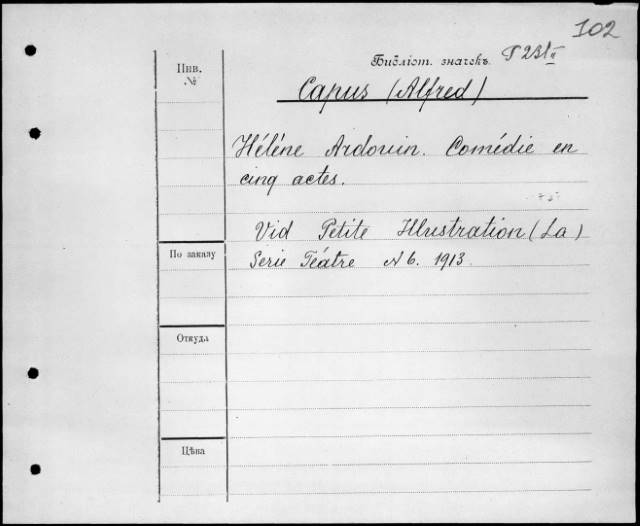 102
Инв.
№
Библіот. значекъ.
Capus (Alfred)
Héléne Ardouin. Comédie en
cinq actes.
Vid Petite Illustration (La)
Serie Teátre № 6. 1913
По заказу
Откуда
Цѣна